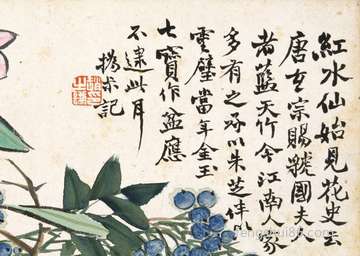 紅水仙始見花史云
唐玄宗賜虢國夫人
者藍天竹今江南人家
多有之以朱芝伴
靈璧當年金玉
七寶作盆應
不逮此耳
撝叔記